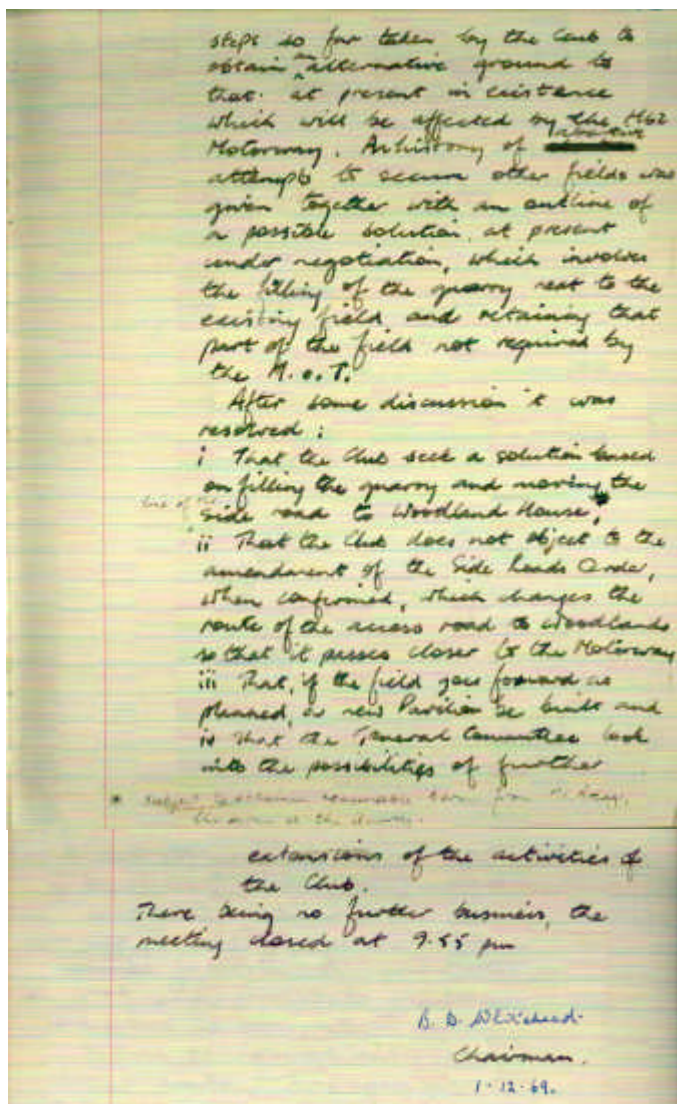 steps so far taken by the Club to
obtain an alternative ground to
that at present in existence
which will be affected by the M62
Motorway. A history of abortive
attempts to secure other fields was
given together with an outline of
a possible solution, at present
under negotiation, which involves
the filling of the quarry next to the
existing field and retaining that
part of the field not required by
the M.o.T.
After some discussion it was
resolved :
i That the Club seek a solution based
on filling the quarry and moving the
line of the
side road to Woodland House;
ii That the Club does not object to the
amendment of the Side Roads Order,
when confirmed, which changes the
route of the access road to Woodlands
so that it passes closer to the Motorway
iii That, if the field goes forward as
planned, a new Pavilion be built and
iv that the General Committee look
into the possibilities of further
* subject to reasonable from
the owner of the quarry.
extensions of the activities of
the Club.
There being no further business, the
meeting closed at 9.55 pm
B. D. Whitehead
Chairman.
1.12.69.